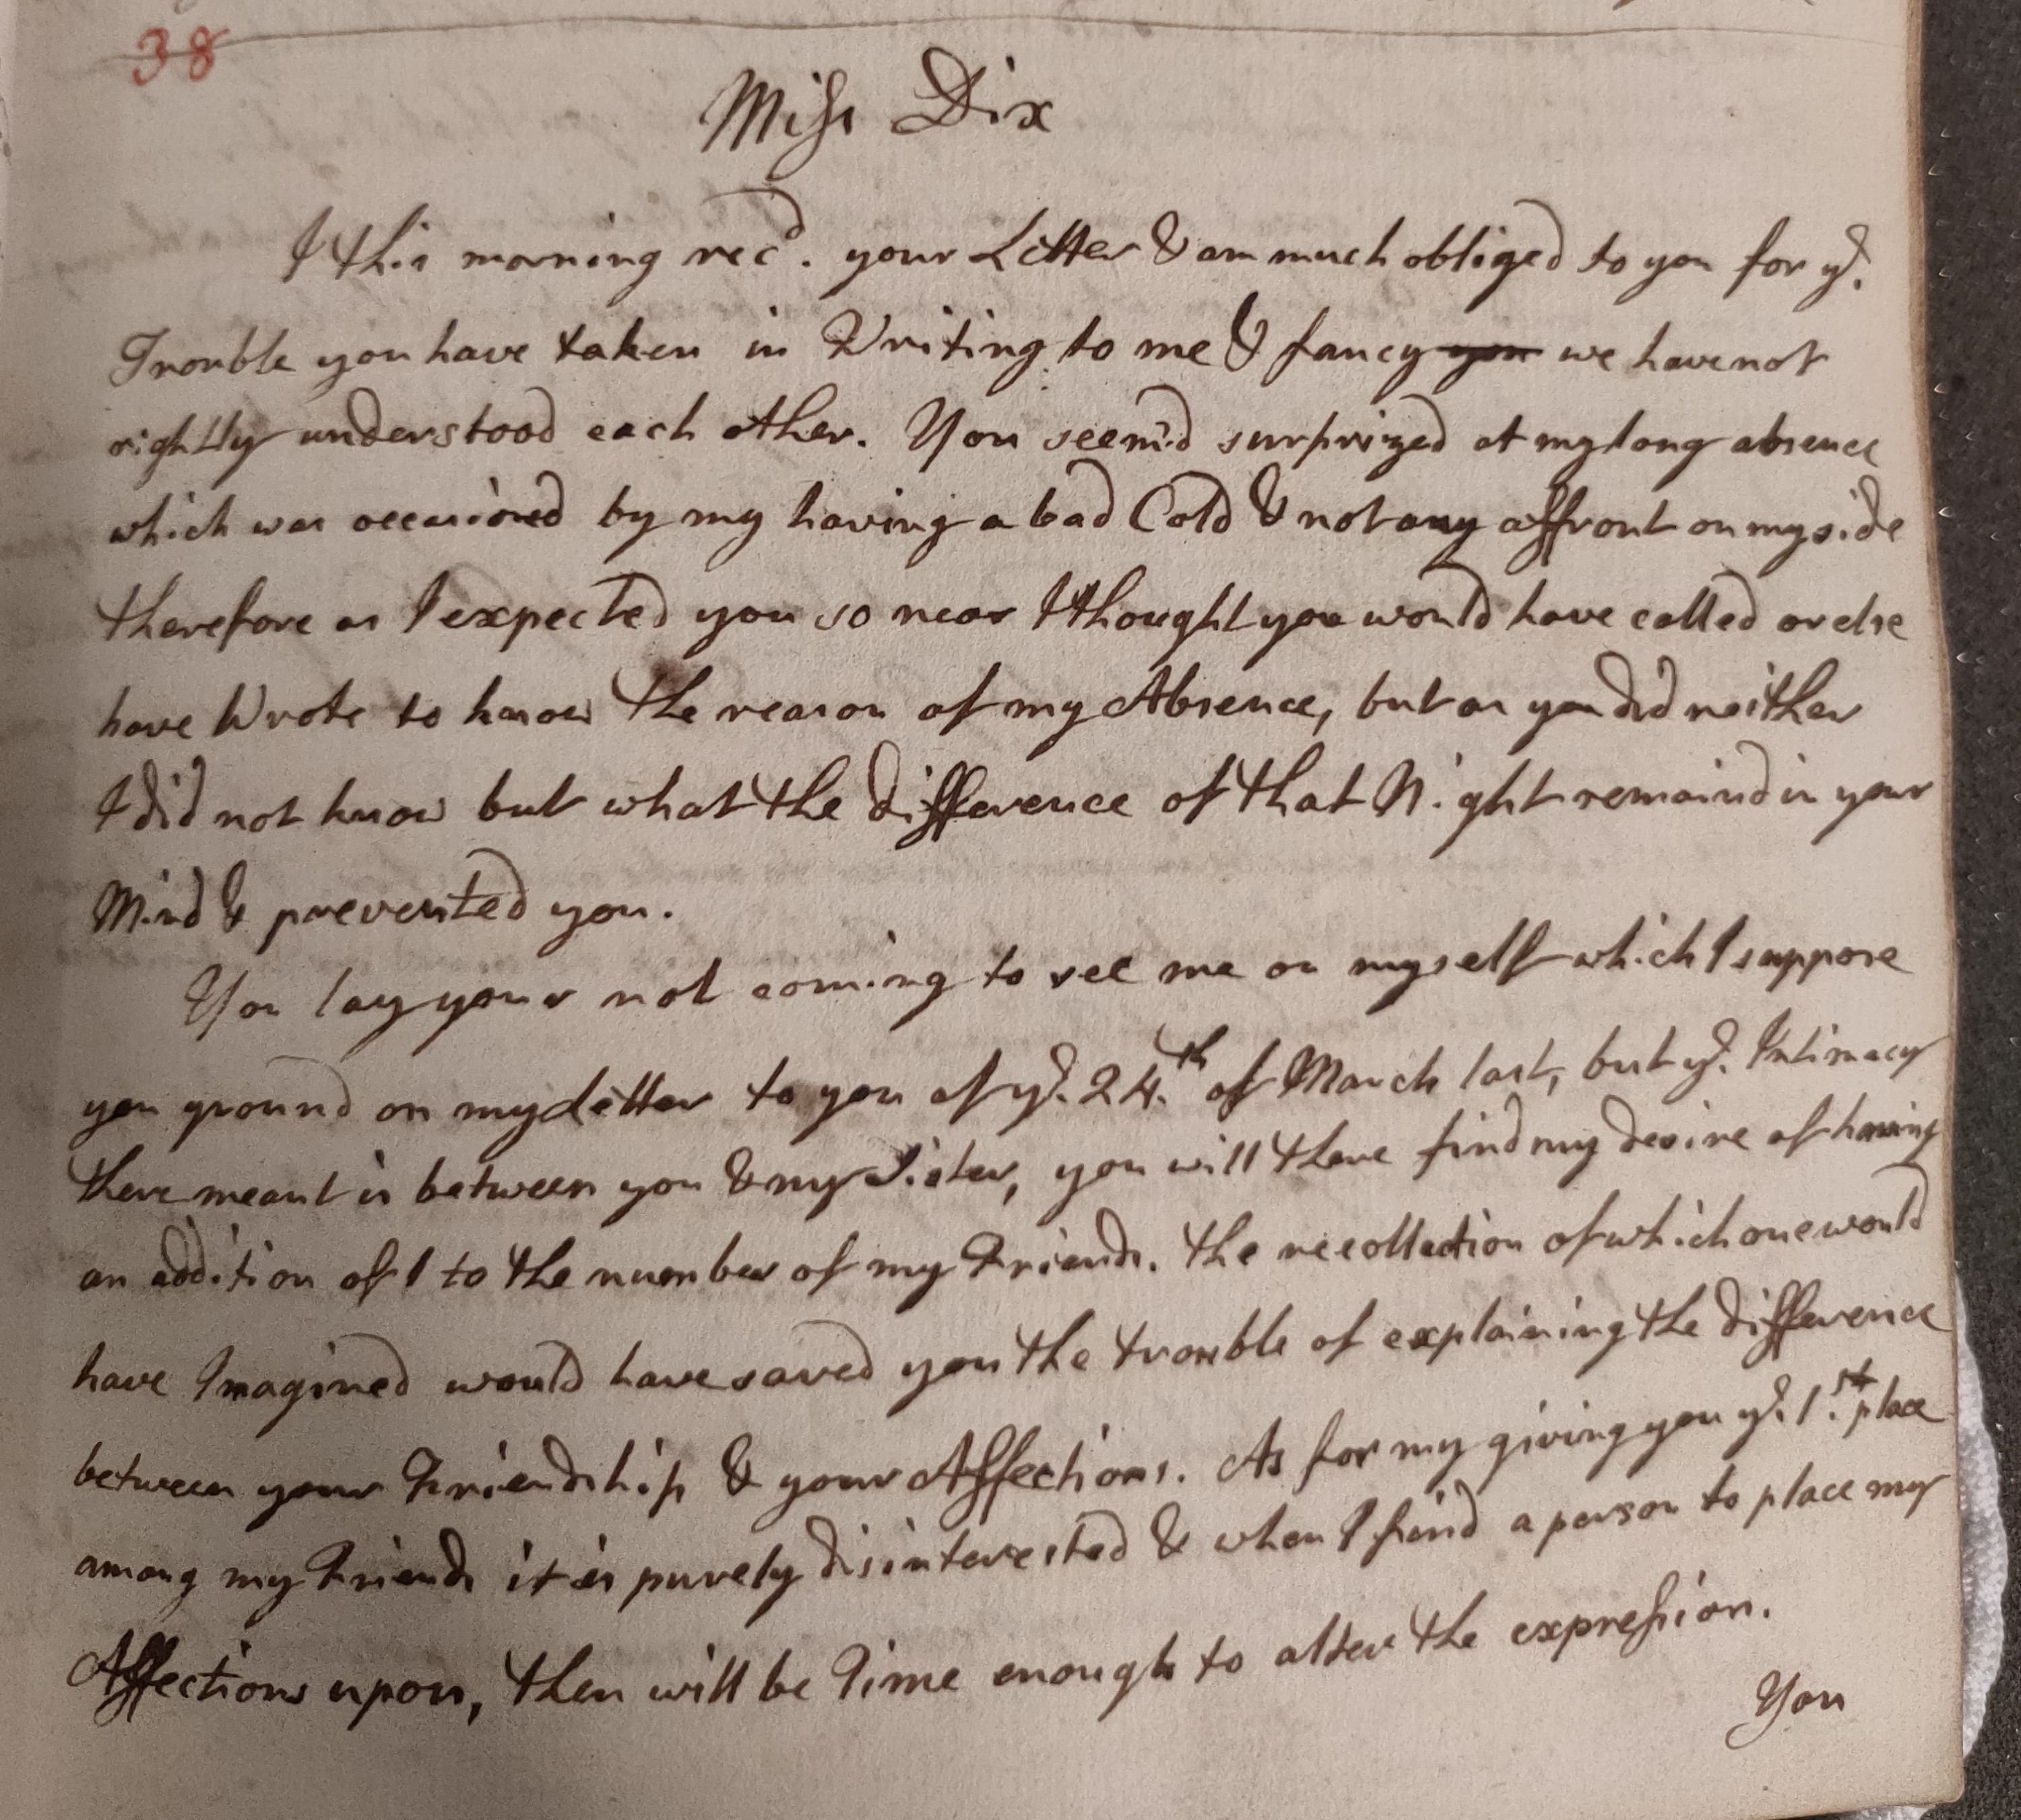 38
Miss Dix
I this morning rec'd. your Letter & am much obliged to you for ye.
Trouble you have taken in Writing to me & fancy you we have not
rightly understood each other. You seem'd surprized at my long absence
which was occasioned by my having a bad Cold & not any affront on my side
therefore as I expected you so near I thought you would have called or else
have Wrote to know the reason of my Absence, but as you did neither
I did not know but what the difference of that Night remaind in your
Mind & prevented you.
You lay your not coming to see me on myself which I suppose
you ground on my Letter to you of ye. 24.th of March last, but ye. Intimacy
there meant is between you & my Sister, you will there find my desire of having
an addition of 1 to the number of my Friends. the recollection of which one would
have Imagined would have saved you the trouble of explaining the difference
between your Friendship & your Affections. As for my giving you ye. 1.st place
among my Friends it is purely disinterested & when I find a person to place my
Affections upon, then will be Time enough to alter the expression.
You